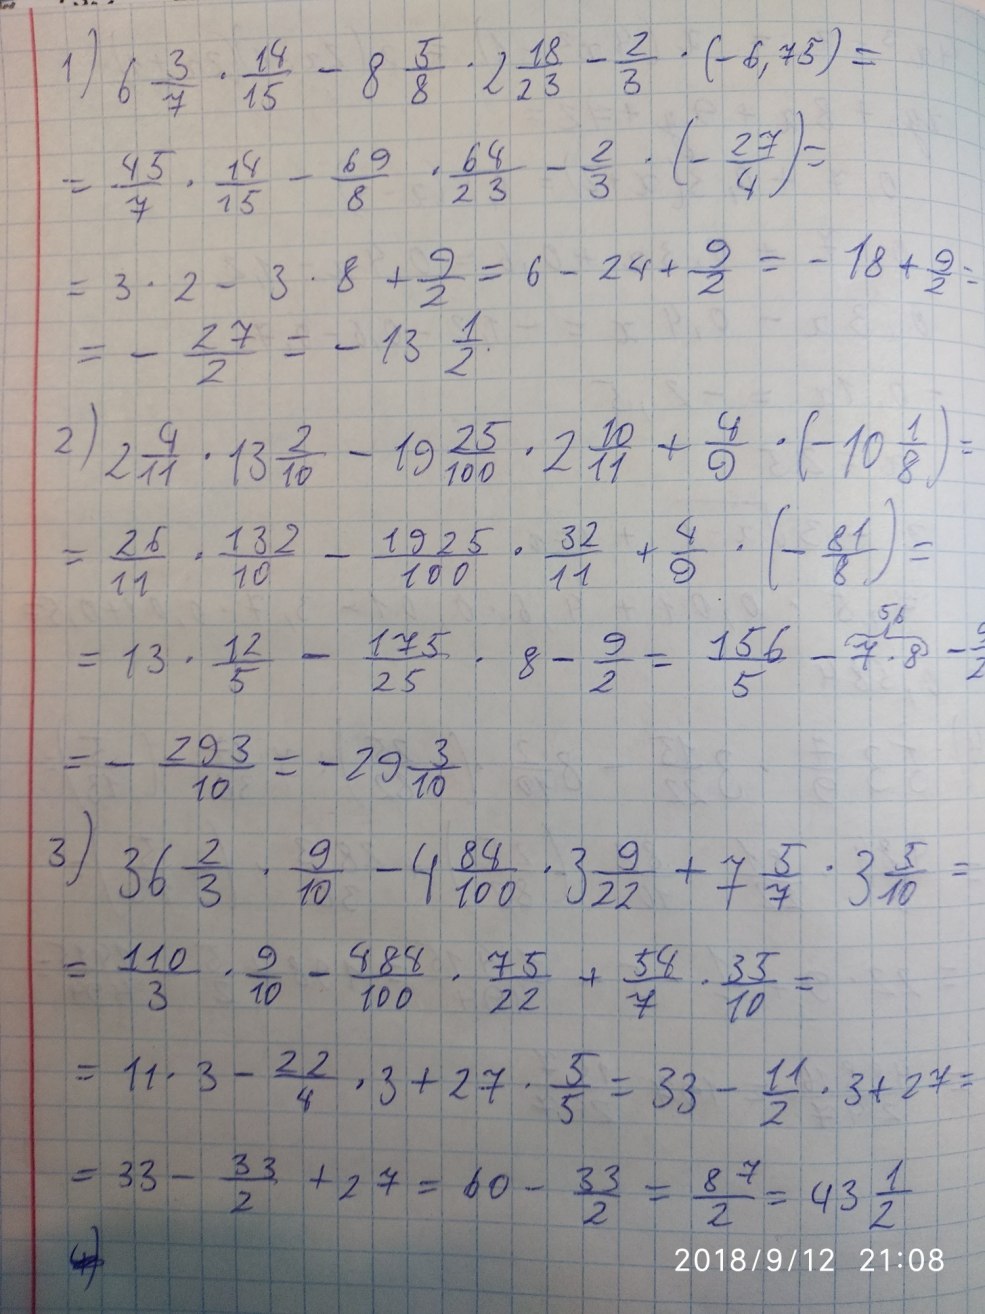 1) 6 3/7 · 14/15 - 8 5/8 · 2 18/23 - 2/3 · (-6,75) =
= 45/7 · 14/15 - 69/8 · 64/23 - 2/3 · (- 27/4) =
= 3 · 2 - 3 · 8 + 9/2 = 6 - 24 + 9/2 = - 18 + 9/2 =
= - 27/2 = - 13 1/2.
2) 2 4/11 · 13 2/10 - 19 25/100 · 2 10/11 + 4/9 · (-10 1/8) =
= 26/11 · 132/10 - 1925/100 · 32/11 + 4/9 · (- 81/8) =
56
= 13 · 12/5 - 175/25 · 8 - 9/2 = 156/5 - 7 · 8 - 9/2
= - 293/10 = - 29 3/10
3) 36 2/3 · 9/10 - 4 84/100 · 3 9/22 + 7 5/7 · 3 5/10 =
= 110/3 · 9/10 - 484/100 · 75/22 + 54/7 · 35/10 =
= 11 · 3 - 22/4 · 3 + 27 · 5/5 = 33 - 11/2 · 3 + 27 =
= 33 - 33/2 + 27 = 60 - 33/2 = 87/2 = 43 1/2
2018/9/12 21:08